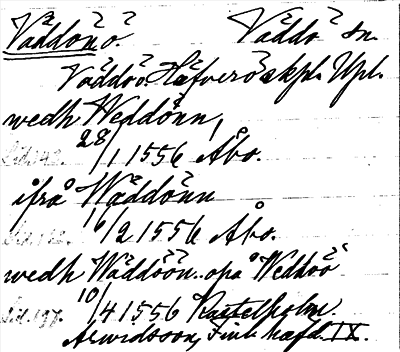 Väddön ö. Väddö sn
Väddö o. Häfverö skpl. Upl.
wedh Weddönn,
Sid. 142. 28/1 1556 Åbo.
ifrå Wäddönn
16/2 1556 Åbo.
wedh Wäddöön.. opå Weddöö
Sid. 197. 10/4 1556 Kastelholm.
Arwidsson, Finl. häfd. IX.